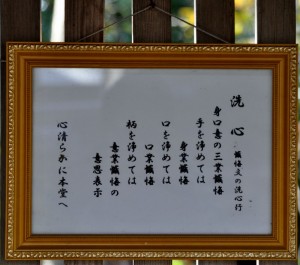 洗心 懺悔文の洗心行
身口意の三業懺悔
手を浄めては
身業懺悔
口を浄めては
口業懺悔
柄を浄めては
意業懺悔の
意思表示
心清らかに本堂へ